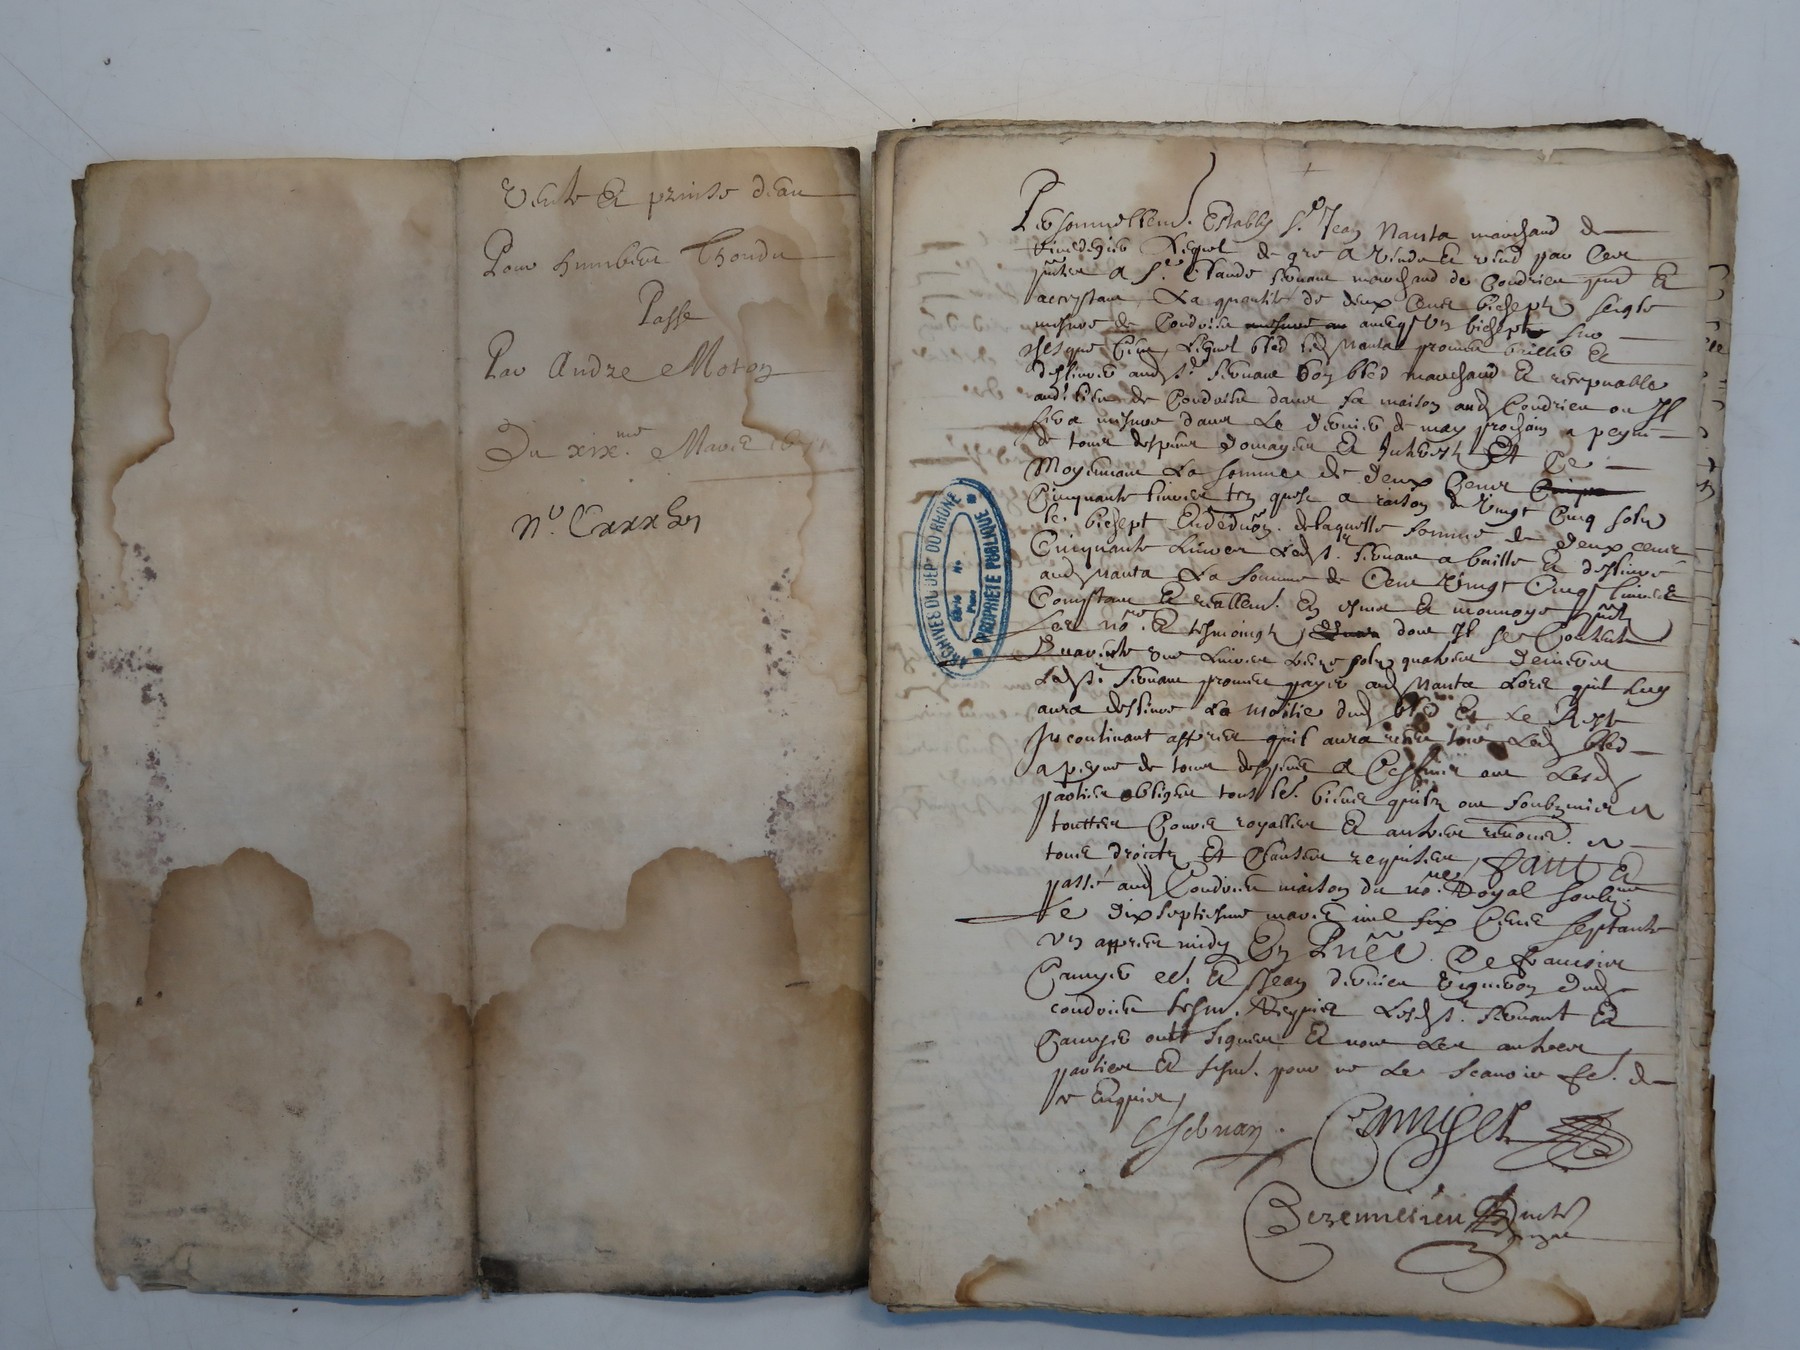 Vente et prinse deau
Pour humbert Thondu
Passe
Par Andre Moron
Du xix.me Mars 1671
N.o Cxxx
ARCHIVES DU DEPt DU RHONE
Série No
Pièce
* PROPRIETE PUBLIQUE *
Personnellem.t Establiy s.r Jean Nanta marchand de
lequel de gre a vendu et vend par ces
pñtes a s.r Claude Seruant marchand de Condrieu pñt et
acceptant La quantite de deux Cens bichept seigle
mesure de Condrieu auecq vn bichept
bled led Nanta promet bailler et
desliurer aud s.r Seruant bon bled marchand et receptuable
aud lieu de Condrieu dans sa maison aud Condrieu ou Il
sera mesure dans Le dernier de may prochain a peyne
de tous despens domages et Interestz Et Ce
Moyennant La somme de deux Cens
Cinquante liures a raison de vingt Cinq solz
le bichept delaquelle somme de deux cens
Cinquante Liures Led s.r Seruant a baille et desliure
aud Nanta La somme de Cent vingt Cinq liures
Comptant et reallem.t En et monnoye
Les no.re et tesmoingtz dont Il se Contente
Quarante vne Liures treze solz quatre deniers
Led s.r Seruant promet payer aud Nanta Lors quil Luy
aura desliure La moitie dud bled et Le Reste
Incontinant appres quil aura tout Led bled
a peyne de tous despens Lesd
parties obligent tous les biens quilz ont soubzmis a
touttes Cours royalles et autres renonce
tous droictz Et Clauses requises, faict et
passé aud Condrieu maison du no.re Royal soubz.ne
Le dix septiesme mars mil six Cens septante
vn appres midy En Pñce de francois
Camyer et Jean vigneron dud
condrieu tesm. Requis Lesd s.r Seruant et
Camyer ont signes et non Les autres
parties et tesm. pour ne Le scauoir de
ce Enquis,
Seruan. Camyer